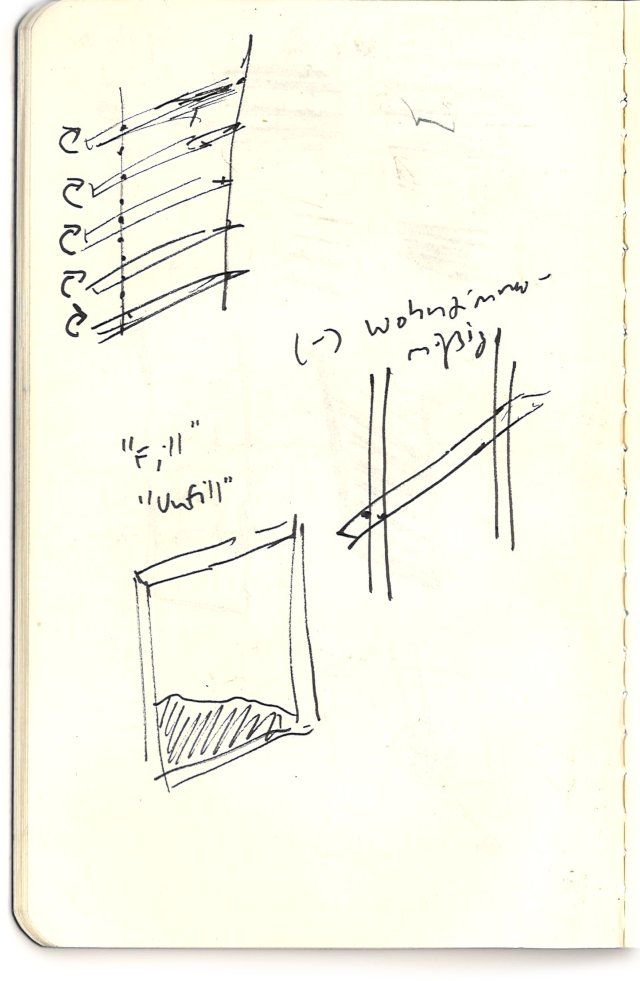 (-) wohnzimmer-
mäßig
"Fill"
"Unfill"